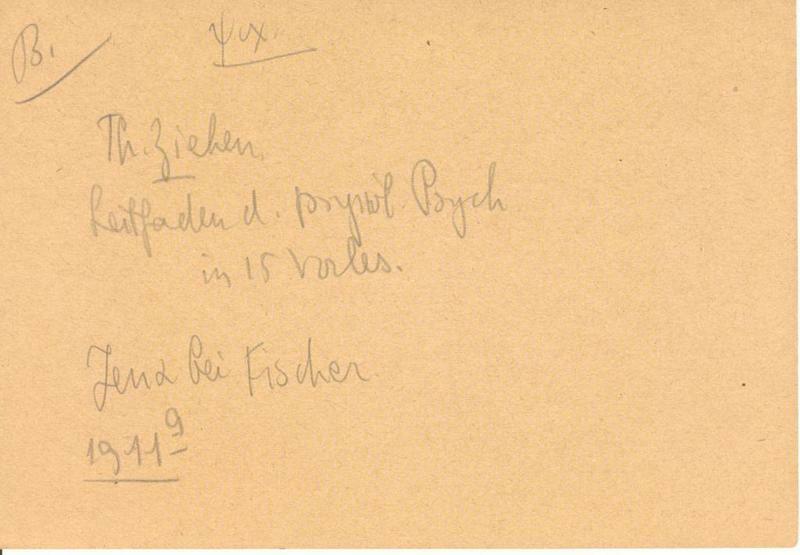 B. ψχ.
Th. Ziehen.
Leitfaden d. Psych
in 15 Vorles.
Jena bei Fischer.
1911⁹